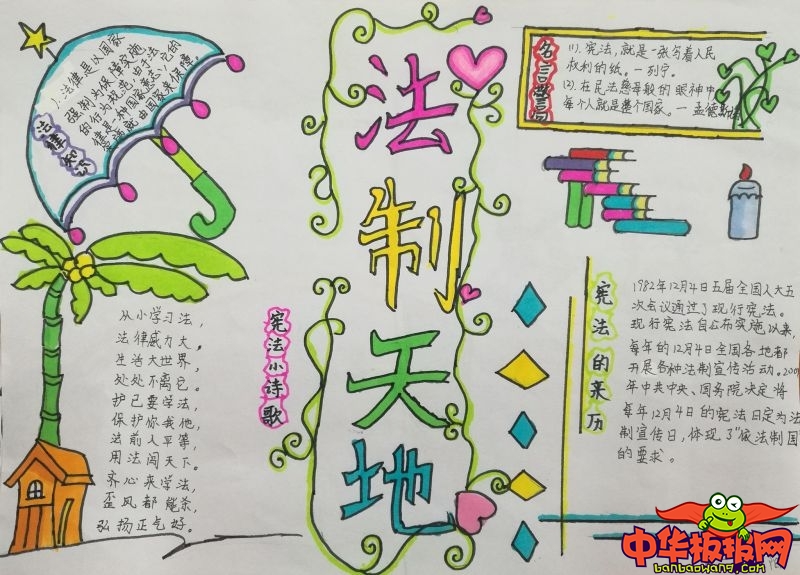 法律知识
1.法律是以国家
强制为保障实施
的行为规范，由于法
律是和国家意志，它的
法制天地
名言警句
(1).宪法，就是一张写着人民
权利的纸。—列宁。
(2).在民法慈母般的眼神中，
每个人就是整个国家。—孟德斯鸠
宪法小诗歌
从小学习法，
法律威力大。
生活大世界，
处处不离它。
护己要学法，
保护你我他，
法前人平等，
用法闯天下。
齐心来学法，
歪风都能杀，
弘扬正气好。
宪法的来历
1982年12月4日五届全国人大五
次会议通过了现行宪法。
现行宪法自公布实施以来，
每年的12月4日全国各地都
开展各种法制宣传活动。2001
年中共中央、国务院决定将
每年12月4日的宪法日定为法
制宣传日，体现了"依法制国"
的要求。
中华板报网
banbaowang.com